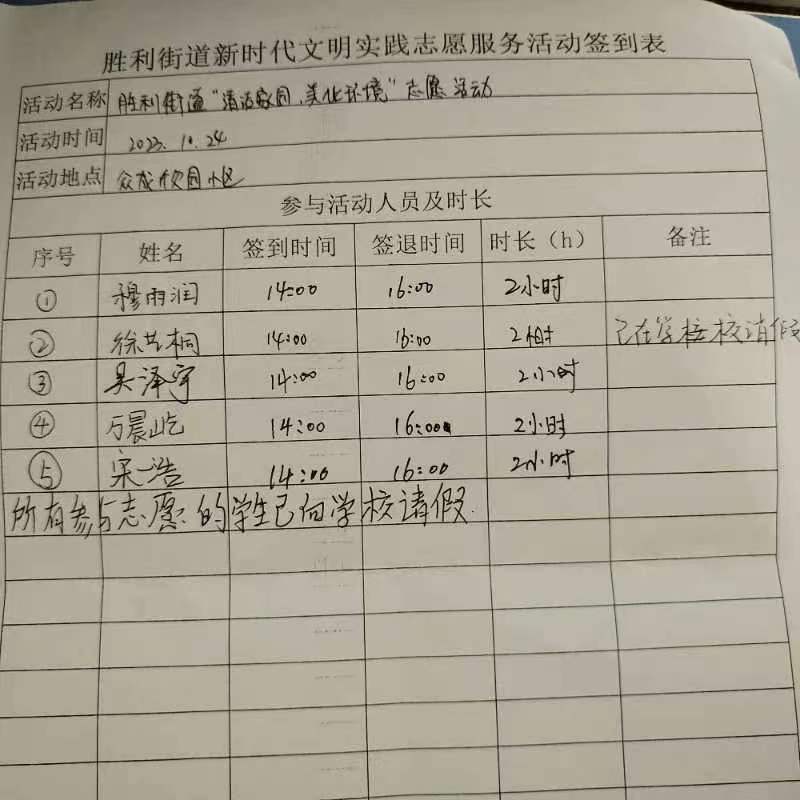 胜利街道新时代文明实践志愿服务活动签到表
活动名称 胜利街道“清洁家园、美化环境”志愿活动
活动时间 2023.10.24
活动地点 众成欣园小区
参与活动人员及时长
序号 姓名 签到时间 签退时间 时长（h） 备注
① 穆雨润 14:00 16:00 2小时
② 徐艺桐 14:00 16:00 2小时 已在学校校请假
③ 吴泽宇 14:00 16:00 2小时
④ 万晨屹 14:00 16:00 2小时
⑤ 宋浩 14:00 16:00 2小时
所有参与志愿的学生已向学校请假.